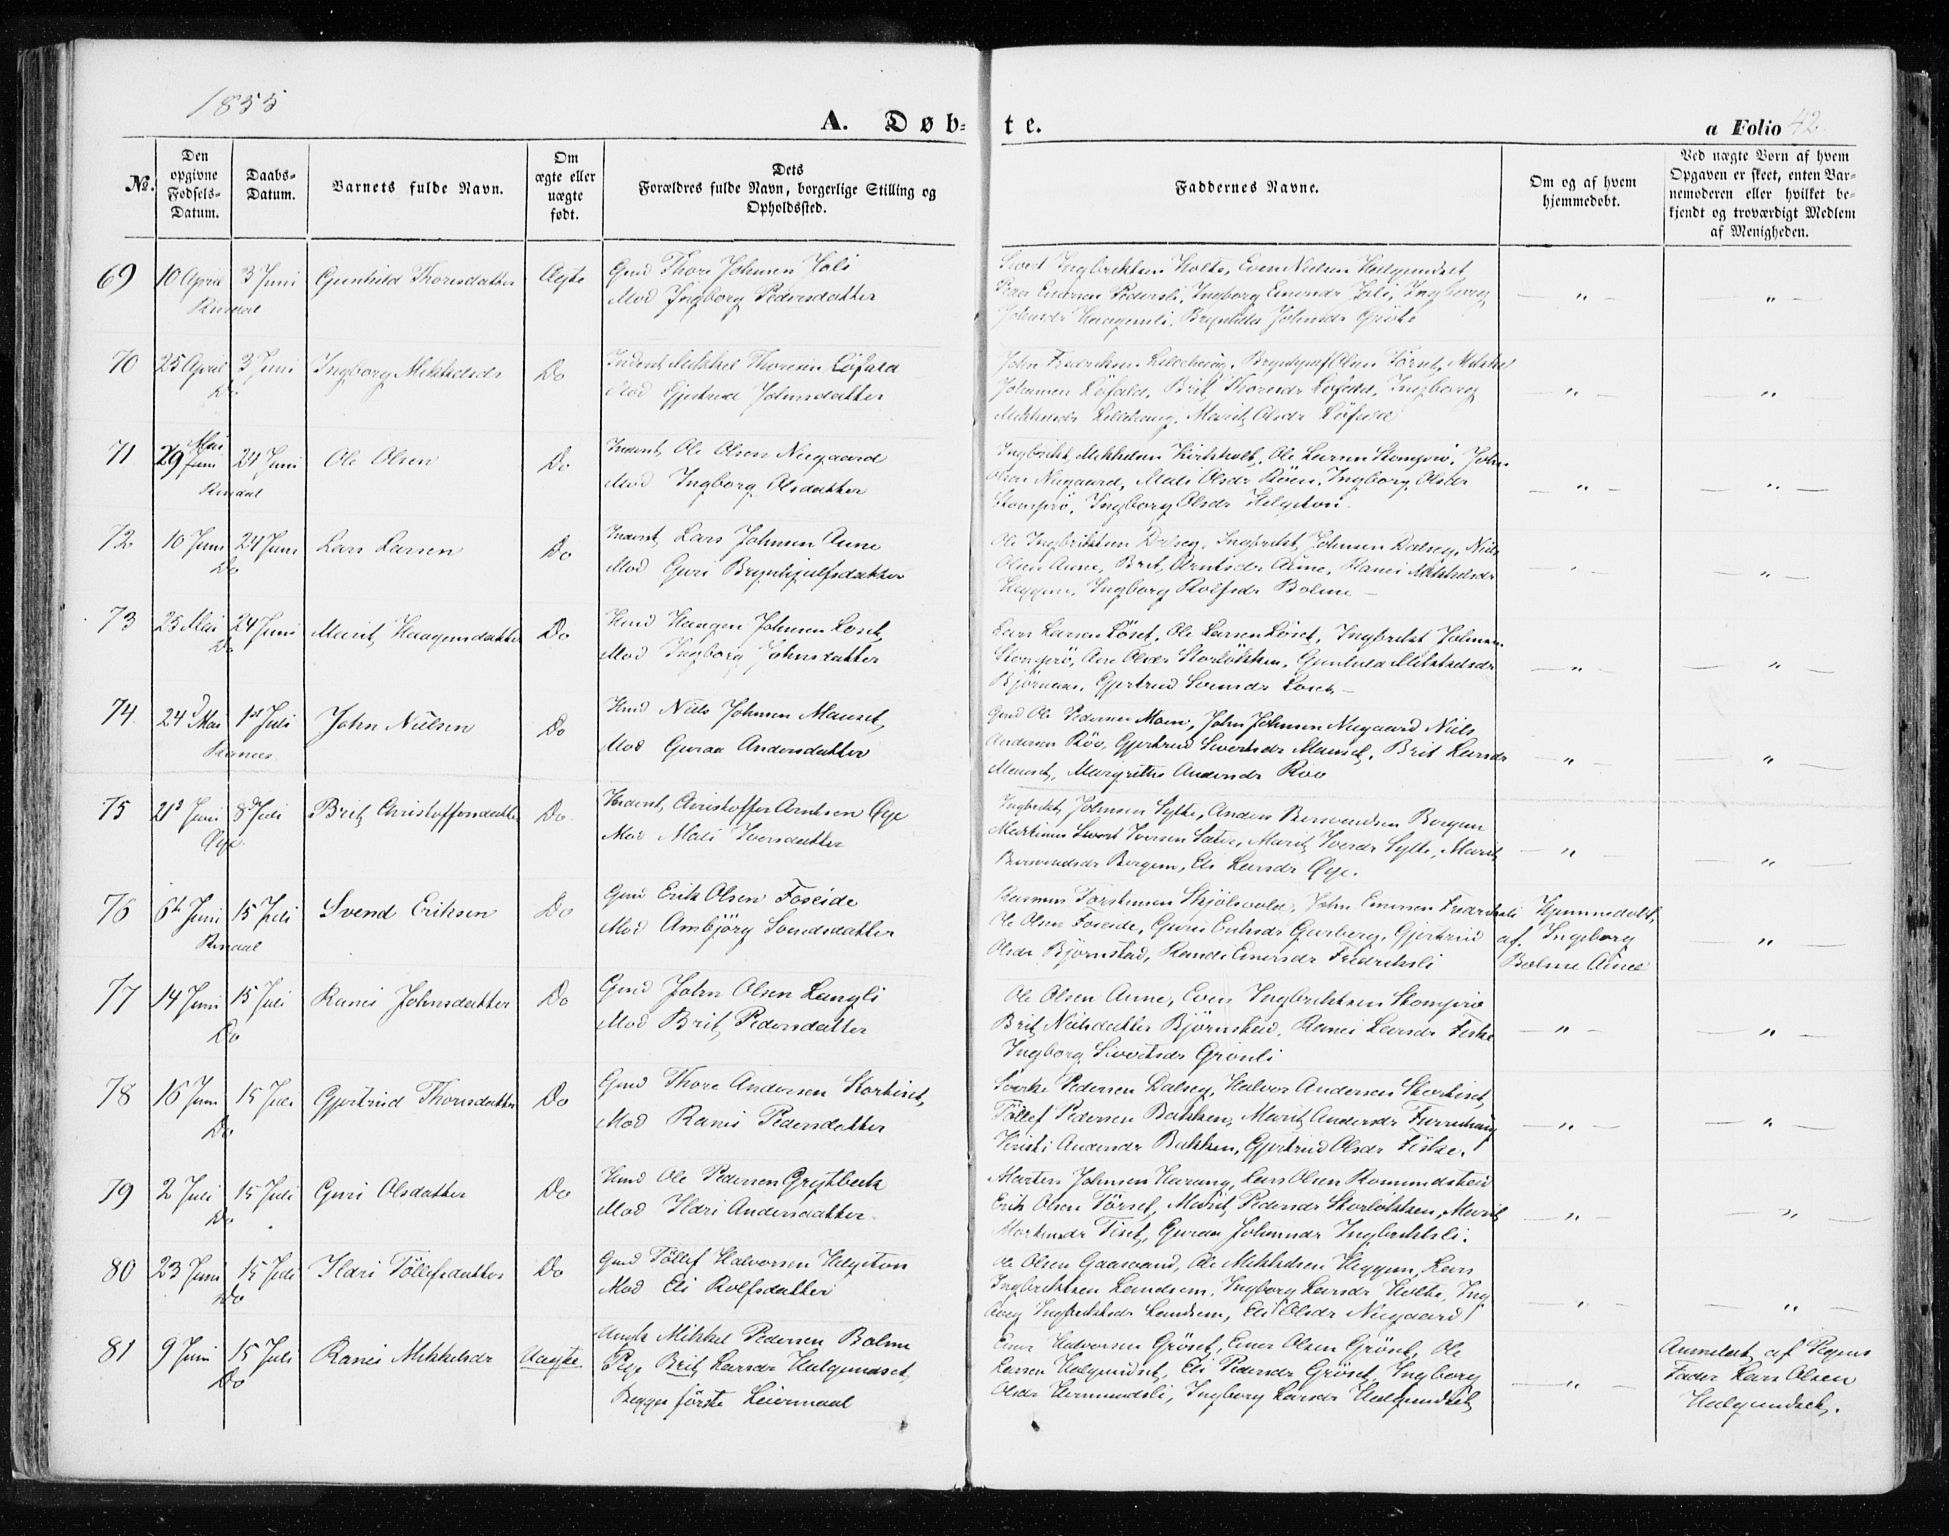 1855
A. Døb-te.
a Folio 42.
No.
Den opgivne Fødsels-Datum.
Daabs-Datum.
Barnets fulde Navn.
Om ægte eller uægte født.
Dets Forældres fulde Navn, borgerlige Stilling og Opholdssted.
Faddernes Navne.
Om og af hvem hjemmedøbt.
Ved uægte Børn af hvem Opgaven er skeet, enten Barnemoderen eller hvilket bekjendt og troværdigt Medlem af Menigheden.
69 10 April 3 Juni Gunhild Thoresdatter Ægte Gmd Thore Johnsen
Rindal Mod Ingborg Pedersdatter
Sivert Ingbrektsen Holte, Even Nielsen Halgundset
70 25 April 3 Juni Ingborg Mikkelsdr Do Inderst Mikkel Thoresen Løfald
Do Mod Gjertrud Johnsdatter
John Fredriksen Lillehaug, Brynhjulf Olsen
Johnsen Løfald, Brit Thoresdr Løfald, Ingborg
Mikkelsdr Lillehaug, Marit Olsdr Løfald
71 29 Mai 24 Juni Ole Olsen Do Inderst Ole Olsen Nergaard
Rindal Mod Ingborg Olsdatter
Ingbrikt Mikkelsen Kirkholt, Ole Larsen Stomprø, John
Olsen Nergaard, Mali Olsdr Røen, Ingborg Olsdr
Stomprø, Ingborg Olsdr Helgeton.
72 10 Juni 24 Juni Lars Larsen Do Inderst Lars Johnsen Aune
Do Mod Guri Brynhjulfsdatter
Ole Ingbriktsen Dalseg, Ingbrikt Johnsen Dalseg, Niels
Olsen Aune, Brit Arntsdr Aune, Ranei Mikkelsdr
Heggem, Ingborg Rolfsdr Bolme
73 25 Mai 24 Juni Marit Haagensdatter Do Hmd Haagen Johnsen Løset,
Do Mod Ingborg Johnsdatter
Lars Larsen Løset, Ole Larsen Løset, Ingbrikt Johnsen
Stomprø, Ane Olsdr Storløkken, Gunhild Mikkelsdr
Bjørnaas, Gjertrud Svensdr Løset
74 24 Mai 1st Juli John Nielsen Do Hmd Niels Johnsen Mauset,
Ranes Mod Guraa Andersdatter
Gmd Ole Pedersen Moen, John Johnsen Nergaard Niels
Andersen Røv, Gjertrud Sivertsdr Mauset, Brit Larsdr
Mauset, Margrethe Andersdr Røv
75 21d Juni 8d Juli Brit Christoffersdatter Do Inderst Christoffer Arntsen Øye
Øye Mod Mali Iversdatter
Ingbrikt Johnsen Sylte, Anders Bersvendsen Bergem
Sivert Iversen Sæter, Marit Iversdr Sylte, Marit
Bersvendsdr Bergem, Eli Larsdr Øye.
76 6te Juni 15 Juli Svend Eriksen Do Gmd Erik Olsen Foseide
Rindal Mod Ambjørg Svendsdatter
Rasmus Torstensen Skjølsvold, John Einersen Fredriksli
Ole Olsen Foseide, Guri Eriksdr Gurberg, Gjertrud
Olsdr Bjørnstad, Einersdr Fredriksli
Hjemmedøbt
af Ingeborg
Bolme Aune
77 14 Juni 15 Juli Ranei Johnsdatter Do Gmd John Olsen Langli
Do Mod Brit Pedersdatter
Ole Olsen Aune, Even Ingbriktsen Stomprø
Brit Nielsdatter Bjørnstad, Ranei Larsdr Fiske
Ingborg Sivertsdr Grønli
78 16 Juni 15 Juli Gjertrud Thoresdatter Do Gmd Thore Andersen Storkiset,
Do Mod Ranei Pedersdatter
Sverke Pedersen Dalseg, Halvor Andersen Storkiset,
Tøllef Pedersen Bakken, Marit Andersdr Furruhaug
Kirsti Andersdr Bakken, Gjertrud Olsdr Fiske.
79 2 Juli 15 Juli Guri Olsdatter Do Hmd Ole Pedersen Grytbæk
Do Mod Ildri Andersdatter.
Morten Johnsen Harang, Lars Olsen Romundstad
Erik Olsen Tørset, Marit Pedersdr Storløkken, Marit
Mortensdr Tiset, Guraa Johnsdr Ingbriktsli.
80 23 Juni 15 Juli Ildri Tøllefsdatter Do Gmd Tøllef Halvorsen Helgeton
Do Mod Eli Rolfsdatter
Ole Olsen Gaasvand, Ole Mikkelsen Heggem, Lars
Ingbriktsen Landsem, Ingborg Larsdr Holte, Ing
borg Ingbriktsdr Landsem, Eli Olsdr Nergaard
81 9 Juni 15 Juli Ranei Mikkelsdr Uægte Ungk Mikkel Pedersen Bolme
Do Pige Brit Larsdr Halgundset,
Begges første Leiermaal
Einer Halvorsen Grøset, Einer Olsen Grøset, Ole
Larsen Halgundset, Eli Pedersdr Grøset, Ingborg
Olsdr Hermundsli, Ingborg Larsdr Halgundset
Anmeldt af Pigens
Fader Lars Olsen
Halgundset.